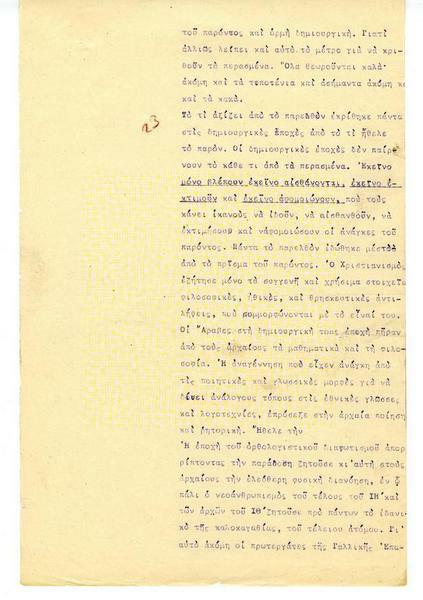 τοῦ παρόντος καὶ ὁρμὴ δημιουργική. Γιατὶ
ἀλλιῶς λείπει καὶ αὐτὸ τὸ μέτρο γιὰ νὰ κρι-
θοῦν τὰ περασμένα. Ὅλα θεωροῦνται καλὰ
ἀκόμη καὶ τὰ τιποτένια καὶ ἀσήμαντα ἀκόμη κ
καὶ τὰ κακά.
Τὸ τί ἀξίζει ἀπὸ τὸ παρελθὸν ἐκρίθηκε πάντα
23
στὶς δημιουργικὲς ἐποχὲς ἀπὸ τὸ τί ἤθελε
τὸ παρόν. Οἱ δημιουργικὲς ἐποχὲς δὲν παίρ-
νουν τὸ κάθε τι ἀπὸ τὰ περασμένα. Ἐκεῖνο
μόνο βλέπουν ἐκεῖνο αἰσθάνονται, ἐκεῖνο ἐ-
κτιμοῦν καὶ ἐκεῖνο ἀφομοιώνουν, ποὺ τοὺς
κάνει ἱκανοὺς νὰ ἰδοῦν, νὰ αἰσθανθοῦν, νὰ
ἐκτιμήσουν καὶ νἀφομοιώσουν οἱ ἀνάγκες τοῦ
παρόντος. Πάντα τὸ παρελθὸν ἰδώθηκε μέσα
ἀπὸ τὸ πρῖσμα τοῦ παρόντος. Ὁ Χριστιανισμὸς
ἐζήτησε μόνο τὰ συγγενῆ καὶ χρήσιμα στοιχεῖα
φιλοσοφικὲς, ἠθικὲς, καὶ θρησκευτικὲς ἀντι-
λήψεις, ποὺ συμμορφώνονται μὲ τὸ εἶναί του.
Οἱ Ἄραβες στὴ δημιουργική τους ἐποχὴ πῆραν
ἀπὸ τοὺς ἀρχαίους τὰ μαθηματικὰ καὶ τὴ φιλο-
σοφία. Ἡ ἀναγέννηση ποὺ εἶχεν ἀνάγκη ἀπὸ
τὶς ποιητικὲς καὶ γλωσσικὲς μορφὲς γιὰ νὰ
δώσει ἀνάλογους τύπους στὶς ἐθνικὲς γλῶσσες
καὶ λογοτεχνίες, ἐπρόσεξε στὴν ἀρχαία ποίηση
καὶ ρητορική. Ἤθελε τὴν
Ἡ ἐποχὴ τοῦ ὀρθολογιστικοῦ διαφωτισμοῦ ἀπορ
ρίπτοντας τὴν παράδοση ζητοῦσε κι'αὐτὴ στοὺς
ἀρχαίους τὴν ἐλεύθερη φυσικὴ διανόηση, ἐν ᾧ
πάλι ὁ νεοανθρωπισμὸς τοῦ τέλους τοῦ ΙΗ΄καὶ
τῶν ἀρχῶν τοῦ ΙΘ΄ζητοῦσε πρὸ πάντων τὸ ἰδανι-
κὸ τῆς καλοκαγαθίας, τοῦ τέλειου ἀτόμου. Γι'
αὐτὸ ἀκόμη οἱ πρωτεργάτες τῆς Γαλλικῆς Ἐπα-